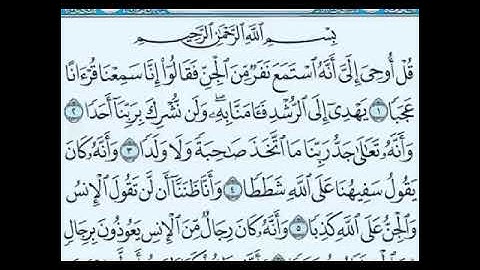 بِسْمِ اللَّهِ الرَّحْمَٰنِ الرَّحِيمِ
قُلْ أُوحِيَ إِلَيَّ أَنَّهُ اسْتَمَعَ نَفَرٌ مِّنَ الْجِنِّ فَقَالُوا إِنَّا سَمِعْنَا قُرْءَانًا
عَجَبًا ١ يَهْدِي إِلَى الرُّشْدِ فَـَٔامَنَّا بِهِ ۖ وَلَن نُّشْرِكَ بِرَبِّنَا أَحَدًا ٢
وَأَنَّهُ تَعَالَىٰ جَدُّ رَبِّنَا مَا اتَّخَذَ صَاحِبَةً وَلَا وَلَدًا ٣ وَأَنَّهُ كَانَ
يَقُولُ سَفِيهُنَا عَلَى اللَّهِ شَطَطًا ٤ وَأَنَّا ظَنَنَّا أَن لَّن تَقُولَ الْإِنسُ
وَالْجِنُّ عَلَى اللَّهِ كَذِبًا ٥ وَأَنَّهُ كَانَ رِجَالٌ مِّنَ الْإِنسِ يَعُوذُونَ بِرِجَالٍ